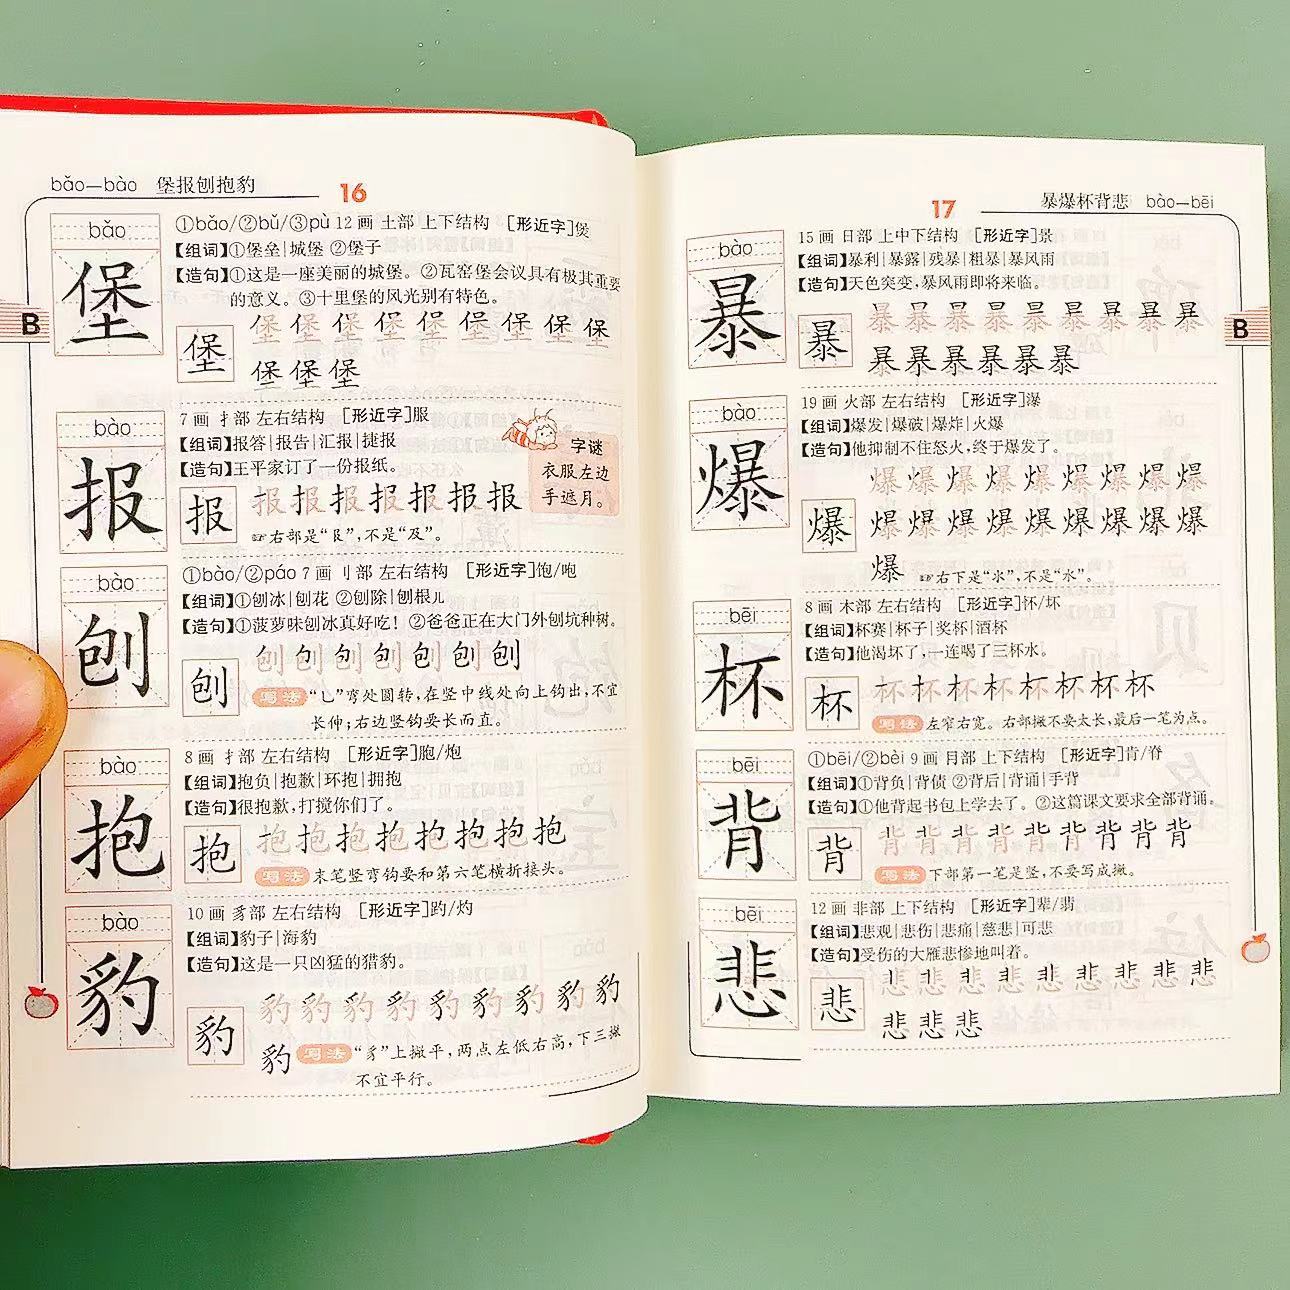 bǎo—bào 堡报刨抱豹
16
B
bǎo
堡
①bǎo/②bǔ/③pù 12画 土部 上下结构 [形近字]煲
【组词】①堡垒|城堡 ②堡子
【造句】①这是一座美丽的城堡。②瓦窑堡会议具有极其重要
的意义。③十里堡的风光别有特色。
堡 堡 堡 堡 堡 堡 堡 堡 堡 堡
堡 堡 堡
bào
报
7画 扌部 左右结构 [形近字]服
【组词】报答|报告|汇报|捷报
【造句】王平家订了一份报纸。
报 报 报 报 报 报 报 报
☞右部是“𠬝”,不是“及”。
字谜
衣服左边
手遮月。
bào
刨
①bào/②páo 7画 刂部 左右结构 [形近字]饱/咆
【组词】①刨冰|刨花 ②刨除|刨根儿
【造句】①菠萝味刨冰真好吃！②爸爸正在大门外刨坑种树。
刨 刨 刨 刨 刨 刨 刨 刨
写法 “乚”弯处圆转,在竖中线处向上钩出,不宜
长伸;右边竖钩要长而直。
bào
抱
8画 扌部 左右结构 [形近字]胞/炮
【组词】抱负|抱歉|环抱|拥抱
【造句】很抱歉,打搅你们了。
抱 抱 抱 抱 抱 抱 抱 抱 抱
写法 末笔竖弯钩要和第六笔横折接头。
bào
豹
10画 豸部 左右结构 [形近字]趵/灼
【组词】豹子|海豹
【造句】这是一只凶猛的猎豹。
豹 豹 豹 豹 豹 豹 豹 豹 豹 豹
豹 写法 “豸”上撇平,两点左低右高,下三撇
不宜平行。
17
暴爆杯背悲 bào—bēi
B
bào
暴
15画 日部 上中下结构 [形近字]景
【组词】暴利|暴露|残暴|粗暴|暴风雨
【造句】天色突变,暴风雨即将来临。
暴 暴 暴 暴 暴 暴 暴 暴 暴 暴
暴 暴 暴 暴 暴 暴
bào
爆
19画 火部 左右结构 [形近字]瀑
【组词】爆发|爆破|爆炸|火爆
【造句】他抑制不住怒火,终于爆发了。
爆 爆 爆 爆 爆 爆 爆 爆 爆 爆
爆 爆 爆 爆 爆 爆 爆 爆 爆
爆 ☞右下是“氺”,不是“水”。
bēi
杯
8画 木部 左右结构 [形近字]怀/坏
【组词】杯赛|杯子|奖杯|酒杯
【造句】他渴坏了,一连喝了三杯水。
杯 杯 杯 杯 杯 杯 杯 杯 杯
写法 左窄右宽。右部撇不要太长,最后一笔为点。
bēi
背
①bēi/②bèi 9画 月部 上下结构 [形近字]肯/脊
【组词】①背负|背债 ②背后|背诵|手背
【造句】①他背起书包上学去了。②这篇课文要求全部背诵。
背 背 背 背 背 背 背 背 背 背
写法 下部第一笔是竖,不要写成撇。
bēi
悲
12画 非部 上下结构 [形近字]辈/翡
【组词】悲观|悲伤|悲痛|慈悲|可悲
【造句】受伤的大雁悲惨地叫着。
悲 悲 悲 悲 悲 悲 悲 悲 悲 悲
悲 悲 悲